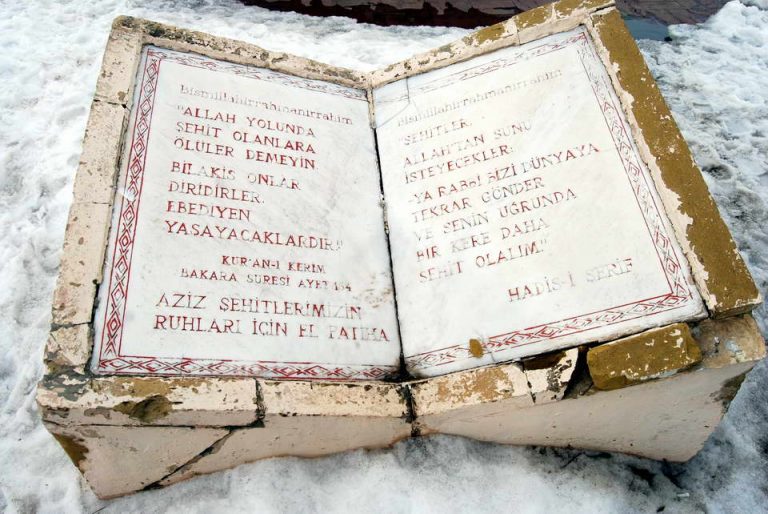 Bismillahirrahmanirrahim
"ALLAH YOLUNDA
ŞEHİT OLANLARA
ÖLÜLER DEMEYİN
BİLAKİS ONLAR
DİRİDİRLER.
EBEDİYEN
YAŞAYACAKLARDIR"
KUR'AN-I KERİM
BAKARA SURESİ AYET 154
AZİZ ŞEHİTLERİMİZİN
RUHLARI İÇİN EL FATİHA
Bismillahirrahmanirrahim
"ŞEHİTLER,
ALLAH'TAN ŞUNU
İSTEYECEKLER:
-YA RABBİ BİZİ DÜNYAYA
TEKRAR GÖNDER
VE SENİN UĞRUNDA
BİR KERE DAHA
ŞEHİT OLALIM."
HADİS-İ ŞERİF